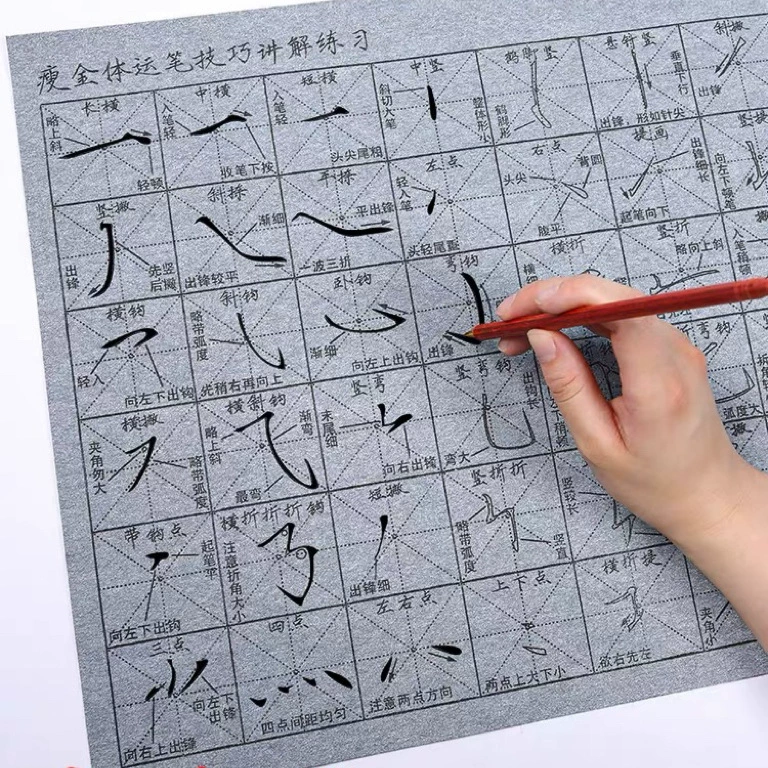 瘦金体运笔技巧讲解练习
长横
略上斜
轻顿
中横
入笔轻
收笔下按
短横
入笔轻
头尖尾粗
中竖
斜切大笔
整体形小
鹤脚竖
鹤腿形
悬针竖
垂直下行
出锋
形如针尖
斜撇
出锋
竖撇
出锋
先竖后撇
斜捺
渐细
出锋较平
平捺
平出锋
一波三折
左点
轻入笔
头轻尾重
右点
头尖
背圆
腹平
提画
出锋细长
起笔向下
竖提
向左下顿笔
横钩
轻入
向左下出钩
斜钩
略带弧度
光稍右再向上
卧钩
渐细
向左上出钩
弯钩
出锋
横折
竖折
略向上斜
横撇
夹角勿大
略带弧度
横斜钩
略上斜
渐弯
最弯
竖弯
末尾细
向右出锋
竖弯钩
出钩长
弯大
弯钩
弧度大
带钩点
起笔平
向左下出钩
横折折折钩
注意折角大小
短撇
出锋细
竖折折
略带弧度
竖直
竖较长
三点
向左下出锋
向右上出锋
四点
四点间距均匀
左右点
注意两点方向
上下点
两点上大下小
横折提
欲右先左
夹角小